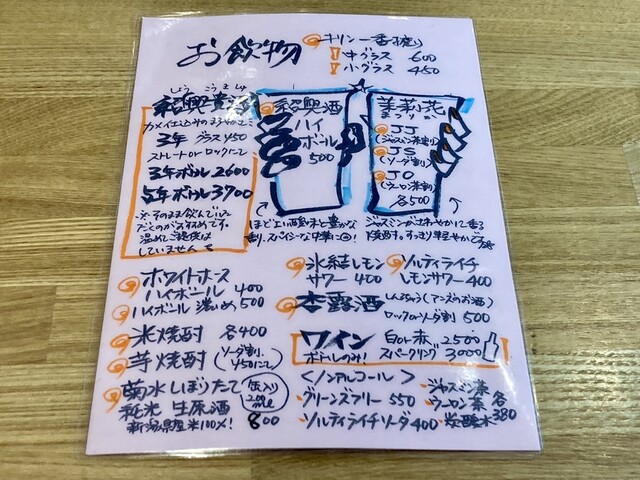 お飲物
キリン一番搾り
中グラス 600
小グラス 450
しょうこうきしゅ
紹興貴酒
カメ仕込みのまろやかさ
3年 グラス450
ストレートorロックにて
3年ボトル 2600
5年ボトル 3700
そのまま飲んでいただくのがおすすめです。
温めてご提供は
していません
紹興酒
ハイ
ボール
500
ほどよい酸味と豊かな
香り。スパイシーな中華に◎!
茉莉花
まつりか
JJ
(ジャスミン茶割)
JS
(ソーダ割)
JO
(ウーロン茶割)
各500
ジャスミンがさわやかに香る
焼酎。すっきり華やかです
ホワイトホース
ハイボール 400
ハイボール 濃いめ 500
米焼酎 各400
芋焼酎 (ソーダ割、
¥50にて)
菊水しぼりたて 缶入り
200ml
純米 生原酒
新潟県産米100%! 800
氷結レモン
サワー 400
ソルティライチ
レモンサワー 400
杏露酒 しんるちゅう(アンズのお酒)
ロックorソーダ割 500
ワイン 白or赤 2500
ボトルのみ! スパークリング 3000
<ノンアルコール>
グリーンズフリー 550
ソルティライチソーダ 400
・ジャスミン茶
・ウーロン茶 各
・炭酸水 380